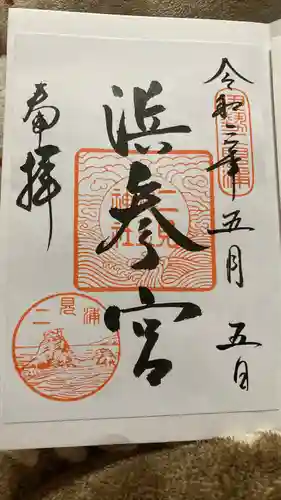 令和三年五月五日
浜参宮
奉拝
二見
神社
二見浦